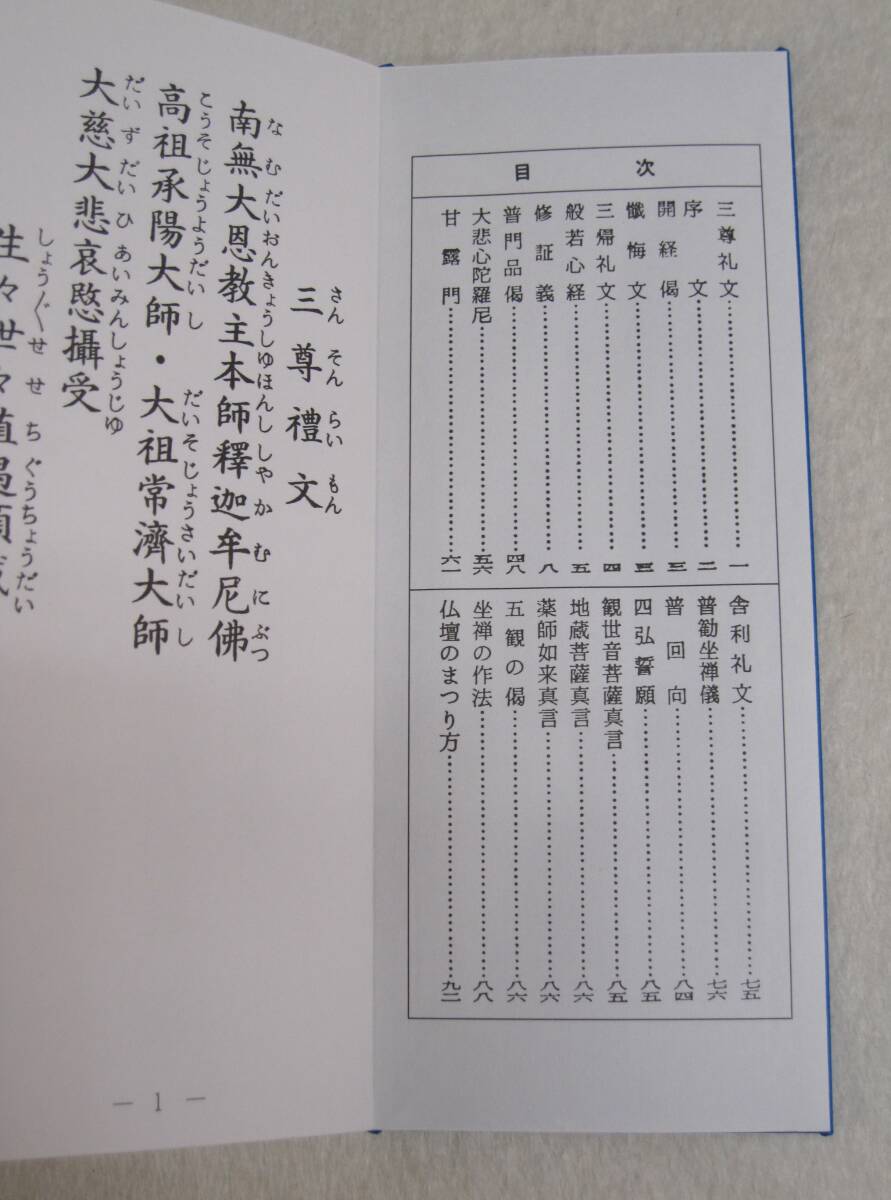 目次
三尊礼文……一
序文……二
開経偈……三
懺悔文……三
三帰礼文……四
般若心経……五
修証義……八
普門品偈……四八
大悲心陀羅尼……五六
甘露門……六一
舎利礼文……七五
普勧坐禅儀……七六
普回向……八四
四弘誓願……八五
観世音菩薩真言……八五
地蔵菩薩真言……八六
薬師如来真言……八六
五観の偈……八六
坐禅の作法……八八
仏壇のまつり方……九二
さんそんらいもん
三尊禮文
なむだいおんきょうしゆほんししゃかむにぶつ
南無大恩教主本師釋迦牟尼佛
こうそじょうようだいし だいそじょうさいだいし
高祖承陽大師・大祖常濟大師
だいずだいひあいみんしょうじゆ
大慈大悲哀愍攝受
しょう〲せせちぐうちょうだい
生々世々
— 1 —